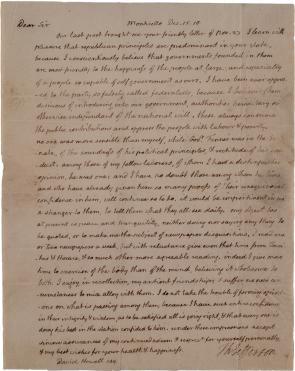 Dear Sir Monticello Dec. 15. 10
Our last post brought me your friendly letter of Nov. 27. I learn with
pleasure that republican principles are predominant in your state,
because I conscientiously believe that governments founded in them
are most friendly to the happiness of the people at large, and especially
of a people so capable of self government as ours. I have been ever opposed
to the party, so falsely called federalists, because I believe them
desirous of introducing into our government, authorities hereditary or
otherwise independant of the national will. these always consume
the public contributions and oppress the people with labour & poverty.
no one was more sensible than myself, while Govr. Fenner was in the Se-
nate, of the soundness of his political principles, & rectitude of his con-
duct. among those of my fellow laborers, of whom I had a distinguished
opinion, he was one: and I have no doubt those among whom he lives
and who have already given him so many proofs of their unequivocal
confidence in him, will continue so to do. it would be impertinent in me
a stranger to them, to tell them what they all see daily. my object too
at present is peace and tranquility, neither doing nor saying any thing to
be quoted, or to make me the subject of newspaper disquisitions. I read one
or two newspapers a week, but with reluctance give even that time from Taci-
tus & Horace, & so much other more agreeable reading. indeed I give more
time to exercise of the body than of the mind, believing it wholesome to
both. I enjoy in recollection, my antient friendships, & suffer no new cir-
cumstances to mix alloy with them. I do not take the trouble of forming opini-
ons on what is passing among them, because I have such entire confidence
in their integrity & wisdom, as to be satisfied all is going right, & that every one is
doing his best in the station confided to him. under these impressions accept
sincere assurances of my continued esteem & respect for yourself personally
& my best wishes for your health & happiness.
Th: Jefferson
David Howell esq.